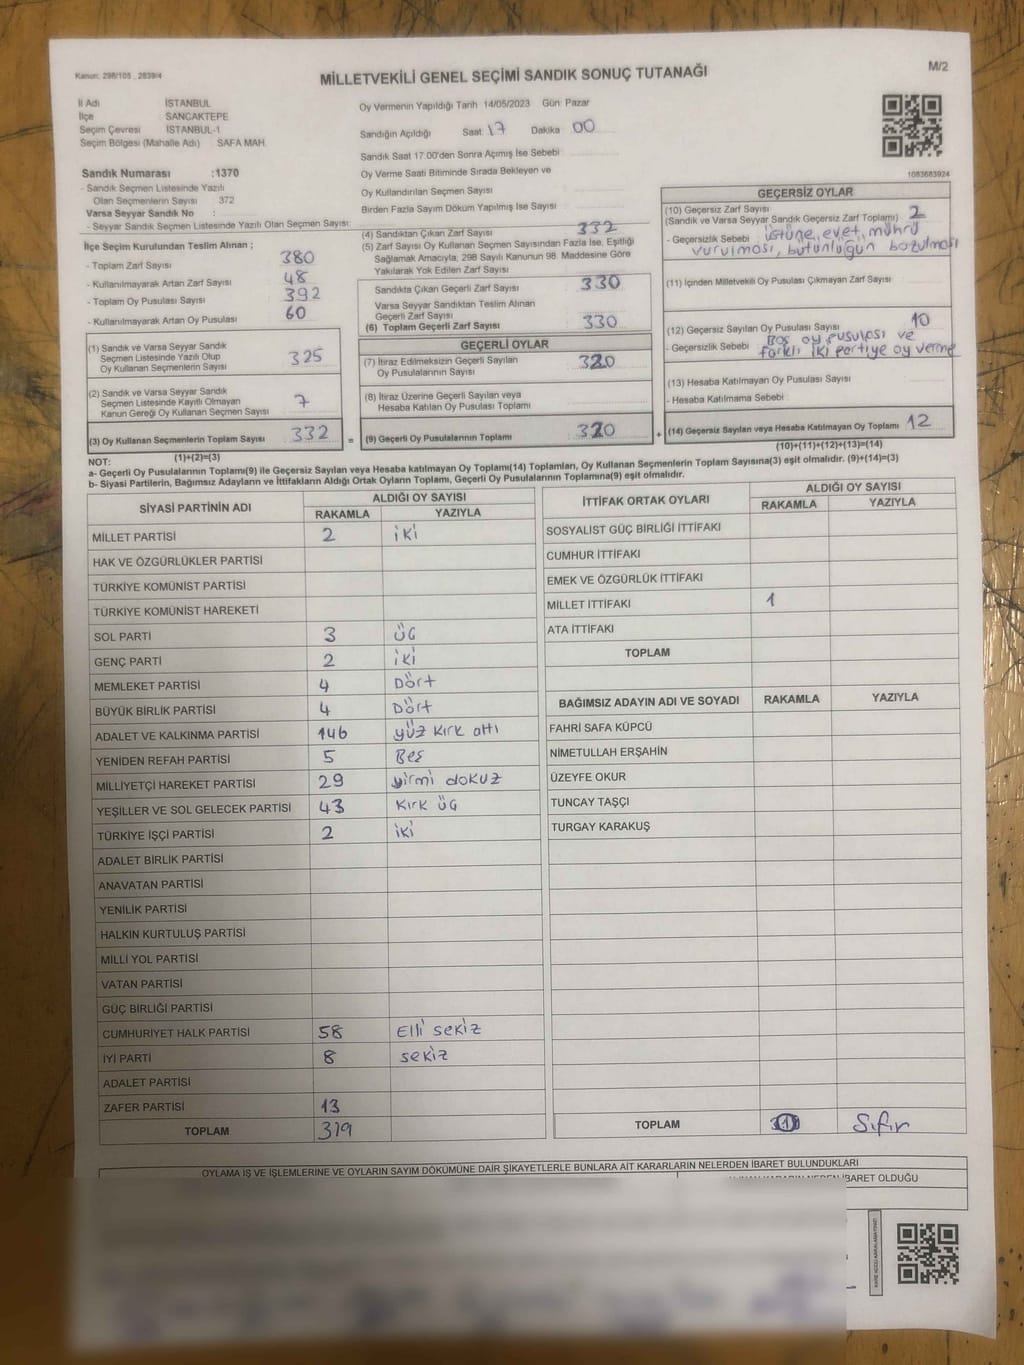 Kanun: 298/105 , 2839/4
MİLLETVEKİLİ GENEL SEÇİMİ SANDIK SONUÇ TUTANAĞI
M/2
İl Adı İSTANBUL
İlçe SANCAKTEPE
Seçim Çevresi İSTANBUL-1
Seçim Bölgesi (Mahalle Adı) SAFA MAH.
Oy Vermenin Yapıldığı Tarih 14/05/2023 Gün: Pazar
Sandığın Açıldığı Saat 17 Dakika 00
Sandık Saat 17.00'den Sonra Açımış İse Sebebi
Oy Verme Saati Bitiminde Sırada Bekleyen ve
Oy Kullandırılan Seçmen Sayısı
Birden Fazla Sayım Döküm Yapılmış İse Sayısı
1083683924
Sandık Numarası :1370
- Sandık Seçmen Listesinde Yazılı
Olan Seçmenlerin Sayısı 372
Varsa Seyyar Sandık No :
- Seyyar Sandık Listesinde Yazılı Olan Seçmen Sayısı:
İlçe Seçim Kurulundan Teslim Alınan ;
- Toplam Zarf Sayısı 380
- Kullanılmayarak Artan Zarf Sayısı 48
- Toplam Oy Pusulası Sayısı 392
- Kullanılmayarak Artan Oy Pusulası 60
(1) Sandık ve Varsa Seyyar Sandık
Seçmen Listesinde Yazılı Olup
Oy Kullanan Seçmenlerin Sayısı 325
(2) Sandık ve Varsa Seyyar Sandık
Seçmen Listesinde Kayıtlı Olmayan
Kanun Gereği Oy Kullanan Seçmen Sayısı 7
(3) Oy Kullanan Seçmenlerin Toplam Sayısı 332 =
(1)+(2)=(3)
(4) Sandıktan Çıkan Zarf Sayısı 332
(5) Zarf Sayısı Oy Kullanan Seçmen Sayısından Fazla İse, Eşitliği
Sağlamak Amacıyla; 298 Sayılı Kanunun 98. Maddesine Göre
Yakılarak Yok Edilen Zarf Sayısı
Sandıkta Çıkan Geçerli Zarf Sayısı 330
Varsa Seyyar Sandıktan Teslim Alınan
Geçerli Zarf Sayısı
(6) Toplam Geçerli Zarf Sayısı 330
GEÇERLİ OYLAR
(7) İtiraz Edilmeksizin Geçerli Sayılan
Oy Pusulalarının Sayısı 320
(8) İtiraz Üzerine Geçerli Sayılan veya
Hesaba Katılan Oy Pusulası Toplamı
(9) Geçerli Oy Pusulalarının Toplamı 320 +
GEÇERSİZ OYLAR
(10) Geçersiz Zarf Sayısı
(Sandık ve Varsa Seyyar Sandık Geçersiz Zarf Toplamı) 2
- Geçersizlik Sebebi üstüne,,evet,,mührü
vurulması, bütünlüğün bozulması
(11) İçinden Milletvekili Oy Pusulası Çıkmayan Zarf Sayısı
(12) Geçersiz Sayılan Oy Pusulası Sayısı 10
- Geçersizlik Sebebi Boş oy pusulası ve
farklı iki partiye oy verme
(13) Hesaba Katılmayan Oy Pusulası Sayısı
- Hesaba Katılmama Sebebi
(14) Geçersiz Sayılan veya Hesaba Katılmayan Oy Toplamı 12
(10)+(11)+(12)+(13)=(14)
NOT:
a- Geçerli Oy Pusulalarının Toplamı(9) ile Geçersiz Sayılan veya Hesaba katılmayan Oy Toplamı(14) Toplamları, Oy Kullanan Seçmenlerin Toplam Sayısına(3) eşit olmalıdır. (9)+(14)=(3)
b- Siyasi Partilerin, Bağımsız Adayların ve İttifakların Aldığı Ortak Oyların Toplamı, Geçerli Oy Pusulalarının Toplamına(9) eşit olmalıdır.
SİYASİ PARTİNİN ADI ALDIĞI OY SAYISI
RAKAMLA YAZIYLA
MİLLET PARTİSİ 2 iki
HAK VE ÖZGÜRLÜKLER PARTİSİ
TÜRKİYE KOMÜNİST PARTİSİ
TÜRKİYE KOMÜNİST HAREKETİ
SOL PARTİ 3 üç
GENÇ PARTİ 2 iki
MEMLEKET PARTİSİ 4 Dört
BÜYÜK BİRLİK PARTİSİ 4 Dört
ADALET VE KALKINMA PARTİSİ 146 yüz kırk altı
YENİDEN REFAH PARTİSİ 5 Beş
MİLLİYETÇİ HAREKET PARTİSİ 29 yirmi dokuz
YEŞİLLER VE SOL GELECEK PARTİSİ 43 Kırk üç
TÜRKİYE İŞÇİ PARTİSİ 2 iki
ADALET BİRLİK PARTİSİ
ANAVATAN PARTİSİ
YENİLİK PARTİSİ
HALKIN KURTULUŞ PARTİSİ
MİLLİ YOL PARTİSİ
VATAN PARTİSİ
GÜÇ BİRLİĞİ PARTİSİ
CUMHURİYET HALK PARTİSİ 58 Elli sekiz
İYİ PARTİ 8 sekiz
ADALET PARTİSİ
ZAFER PARTİSİ 13
TOPLAM 319
İTTİFAK ORTAK OYLARI ALDIĞI OY SAYISI
RAKAMLA YAZIYLA
SOSYALIST GÜÇ BİRLİĞİ İTTİFAKI
CUMHUR İTTİFAKI
EMEK VE ÖZGÜRLÜK İTTİFAKI
MİLLET İTTİFAKI 1
ATA İTTİFAKI
TOPLAM
BAĞIMSIZ ADAYIN ADI VE SOYADI RAKAMLA YAZIYLA
FAHRİ SAFA KÜPCÜ
NİMETULLAH ERŞAHİN
ÜZEYFE OKUR
TUNCAY TAŞÇI
TURGAY KARAKUŞ
TOPLAM Sıfır
OYLAMA İŞ VE İŞLEMLERİNE VE OYLARIN SAYIM DÖKÜMÜNE DAİR ŞİKAYETLERLE BUNLARA AİT KARARLARIN NELERDEN İBARET BULUNDUKLARI
İBARET OLDUĞU